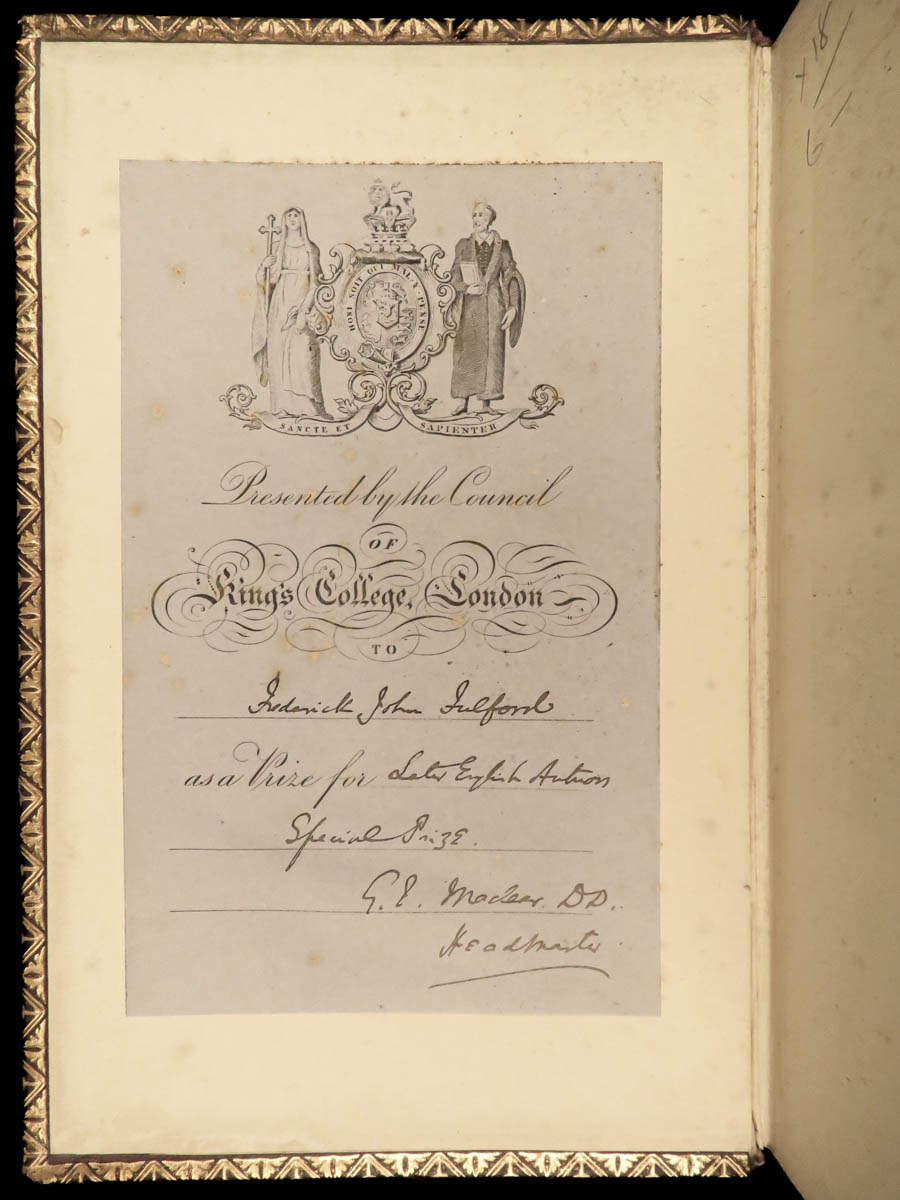 HONI SOIT QUI MAL Y PENSE
SANCTE ET SAPIENTER
Presented by the Council
OF
King's College, London
TO
Frederick John Fulford
as a Prize for Later English Authors
Special Prize.
G. F. Maclear. DD.
HeadMaster
+18/
6-